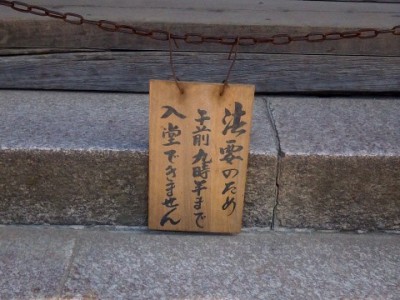 法要のため
午前九時半まで
入堂できません